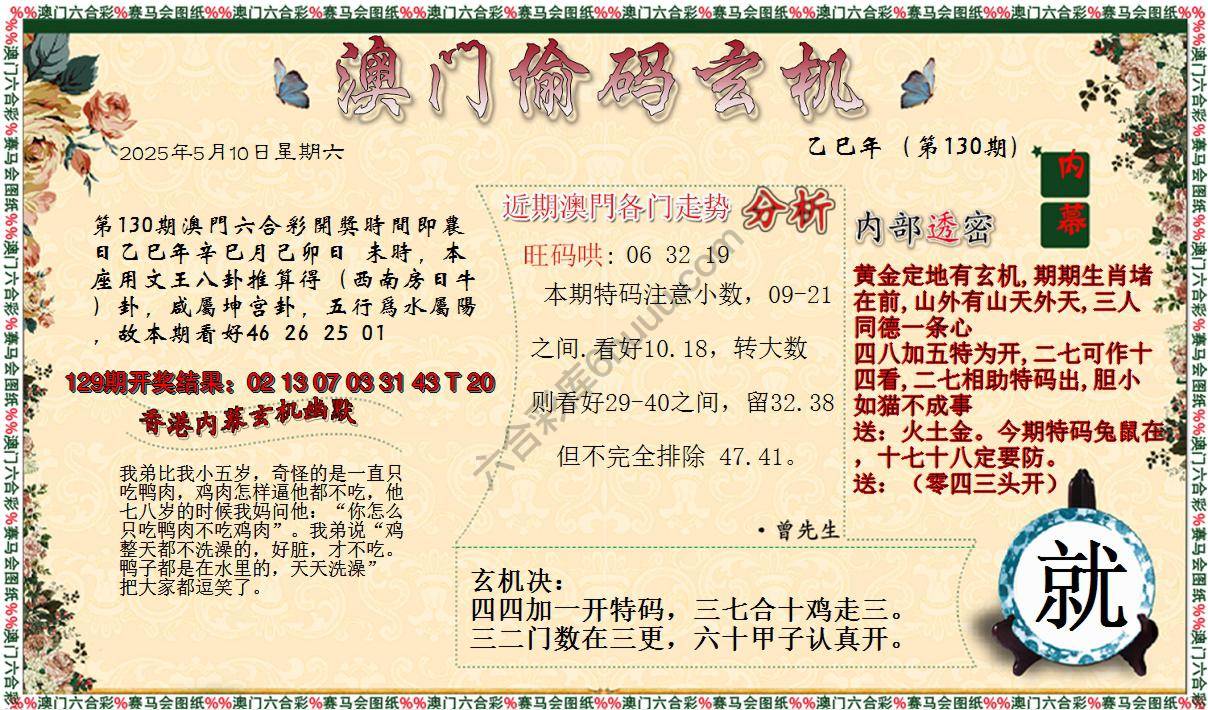 %%澳门六合彩%赛马会图纸%%澳门六合彩%赛马会图纸%%澳门六合彩%赛马会图纸
澳门偷码玄机
2025年5月10日星期六
乙巳年（第130期）
内幕
第130期澳門六合彩開獎時間即農
日乙巳年辛巳月己卯日 未時，本
座用文王八卦推算得（西南房日牛
）卦，咸屬坤宫卦，五行爲水屬陽
，故本期看好46 26 25 01
129期开奖结果：02 13 07 03 31 43 T 20
香港内幕玄机幽默
我弟比我小五岁，奇怪的是一直只
吃鸭肉，鸡肉怎样逼他都不吃，他
七八岁的时候我妈问他：“你怎么
只吃鸭肉不吃鸡肉”。我弟说“鸡
整天都不洗澡的，好脏，才不吃。
鸭子都是在水里的，天天洗澡”
把大家都逗笑了。
近期澳門各门走势 分析
旺码哄: 06 32 19
本期特码注意小数，09-21
之间.看好10.18，转大数
则看好29-40之间，留32.38
但不完全排除 47.41。
·曾先生
内部透密
黄金定地有玄机,期期生肖堵
在前,山外有山天外天,三人
同德一条心
四八加五特为开,二七可作十
四看,二七相助特码出,胆小
如猫不成事
送：火土金。今期特码兔鼠在
，十七十八定要防。
送：（零四三头开）
玄机决：
四四加一开特码，三七合十鸡走三。
三二门数在三更，六十甲子认真开。
就